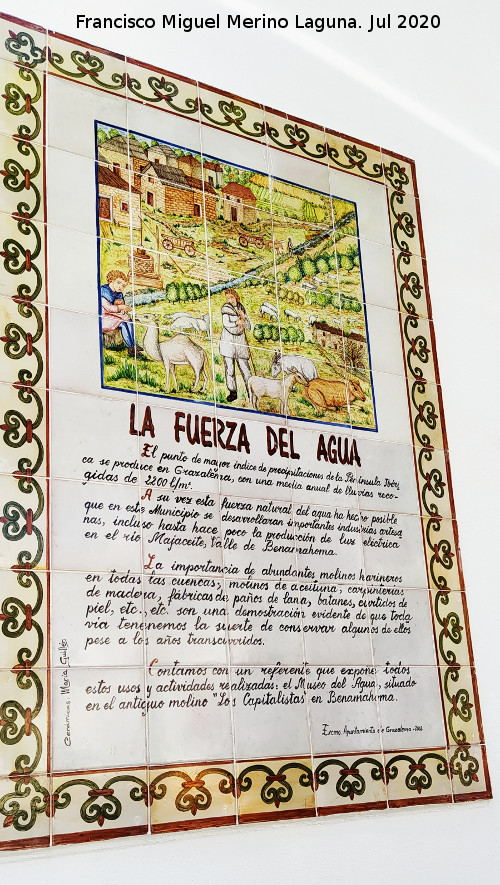 Francisco Miguel Merino Laguna. Jul 2020
LA FUERZA DEL AGUA
El punto de mayor índice de precipitaciones de la Península Ibéri
ca se produce en Grazalema, con una media anual de lluvias reco-
gidas de 2200 l/m².
A su vez esta fuerza natural del agua ha hecho posible
que en este Municipio se desarrollaran importantes industrias artesa
nas, incluso hasta hace poco la producción de luz eléctrica
en el río Majaceite, Valle de Benamahoma.
La importancia de abundantes molinos harineros
en todas las cuencas, molinos de aceituna, carpinterías
de madera, fábricas de paños de lana, batanes, curtidos de
piel, etc., etc. son una demostración evidente de que toda
vía tenemos la suerte de conservar algunos de ellos
pese a los años transcurridos.
Contamos con un referente que expone todos
estos usos y actividades realizadas: el Museo del Agua, situado
en el antiguo molino "Los Capitalistas" en Benamahoma.
Excmo. Ayuntamiento de Grazalema
Cerámicas María Guillén